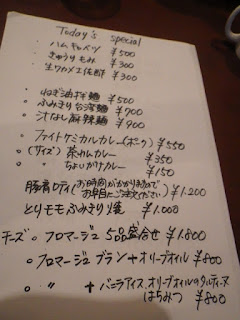 Today's special
・ハムキャベツ ¥500
・きゅうりもみ ¥300
・生ワカメ土佐酢 ¥300
・ねぎ油拌麺 ¥500
・ふみきり台湾麺 ¥700
・汁なし麻辣麺 ¥900
・ファイトケミカルカレー(ポーク) ¥550
・(サイズ) 茶わんカレー ¥350
・〃 ちょいがけカレー ¥150
豚肩ロティ(お時間がかかりますので
お早目にご注文ください) ¥1,200
とりモモふみきり焼 ¥1,000
チーズ。フロマージュ 5品盛合せ ¥1,800
。フロマージュ ブラン+オリーブオイル ¥800
。〃 +バニラアイス オリーブオイル
はちみつ ¥800